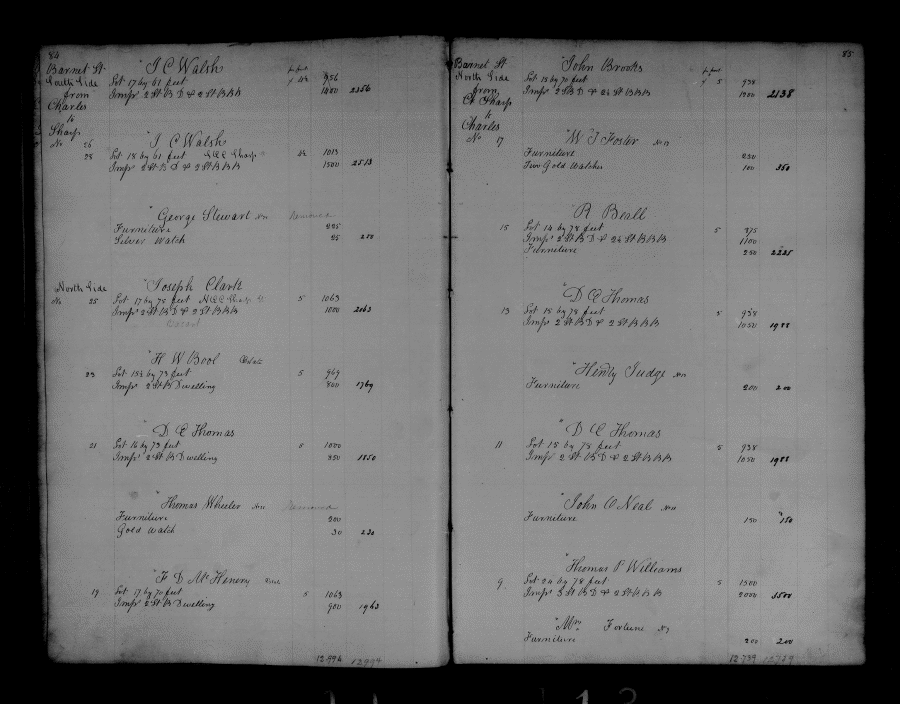 84
Barnet St
South Side
from
Charles
to
Sharp
No 26
I C Walsh
pr foot
Lot 17 by 61 feet 956
Imps 2 St B D & 2 St B B B 1400 2356
I C Walsh
28 Lot 18 by 61 feet Sharp 1013
Imps 2 St B D & 2 St B B B 1500 2513
George Stewart Removed
Furniture 225
Silver Watch 25 250
North Side
Joseph Clark
No 25 Lot 17 by 75 feet Sharp St 5 1063
Imps 2 St B D & 2 St B B B 1000 2063
H W Bool
23 Lot 15½ by 73 feet 5 969
Imps 2 St B Dwelling 800 1769
D C Thomas
21 Lot 16 by 73 feet 5 1000
Imps 2 St B Dwelling 850 1850
Thomas Wheeler Removed
Furniture 200
Gold Watch 30 230
F D McHenery
19 Lot 17 by 70 feet 5 1063
Imps 2 St B Dwelling 900 1963
12.994 12994
85
Barnet St
North Side
from
Sharp
to
Charles
No 17
John Brooks
pr foot
Lot 15 by 70 feet 5 938
Imps 2 S B D & 2½ St B B B 1200 2138
W J Foster No 17
Furniture 250
Two Gold Watches 100 350
R Beall
15 Lot 14 by 78 feet 5 875
Imps 2 St B D & 2½ St B B B 1100
Furniture 250 2225
D C Thomas
13 Lot 15 by 78 feet 5 938
Imps 2 St B D & 2 St B B B 1050 1988
Henry Judge No 11
Furniture 200 200
D C Thomas
11 Lot 15 by 78 feet 5 938
Imps 2 St B D & 2 St B B B 1050 1988
John O Neal
Furniture 150 150
Thomas P Williams
9 Lot 24 by 78 feet 5 1500
Imps 3 St B D & 2 St B B B 2000 3500
Mrs Fortune No 7
Furniture 200 200
12.739 12739